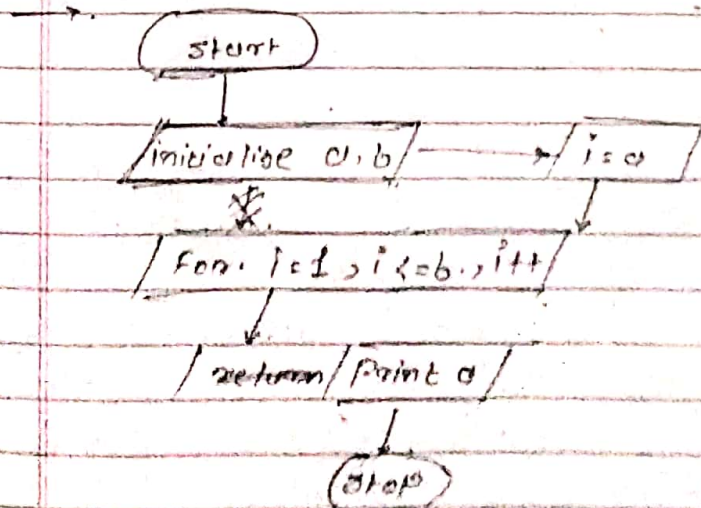 start
initialise a, b
i = a
For. i=1, i<=b., i++
return
Print a
Stop